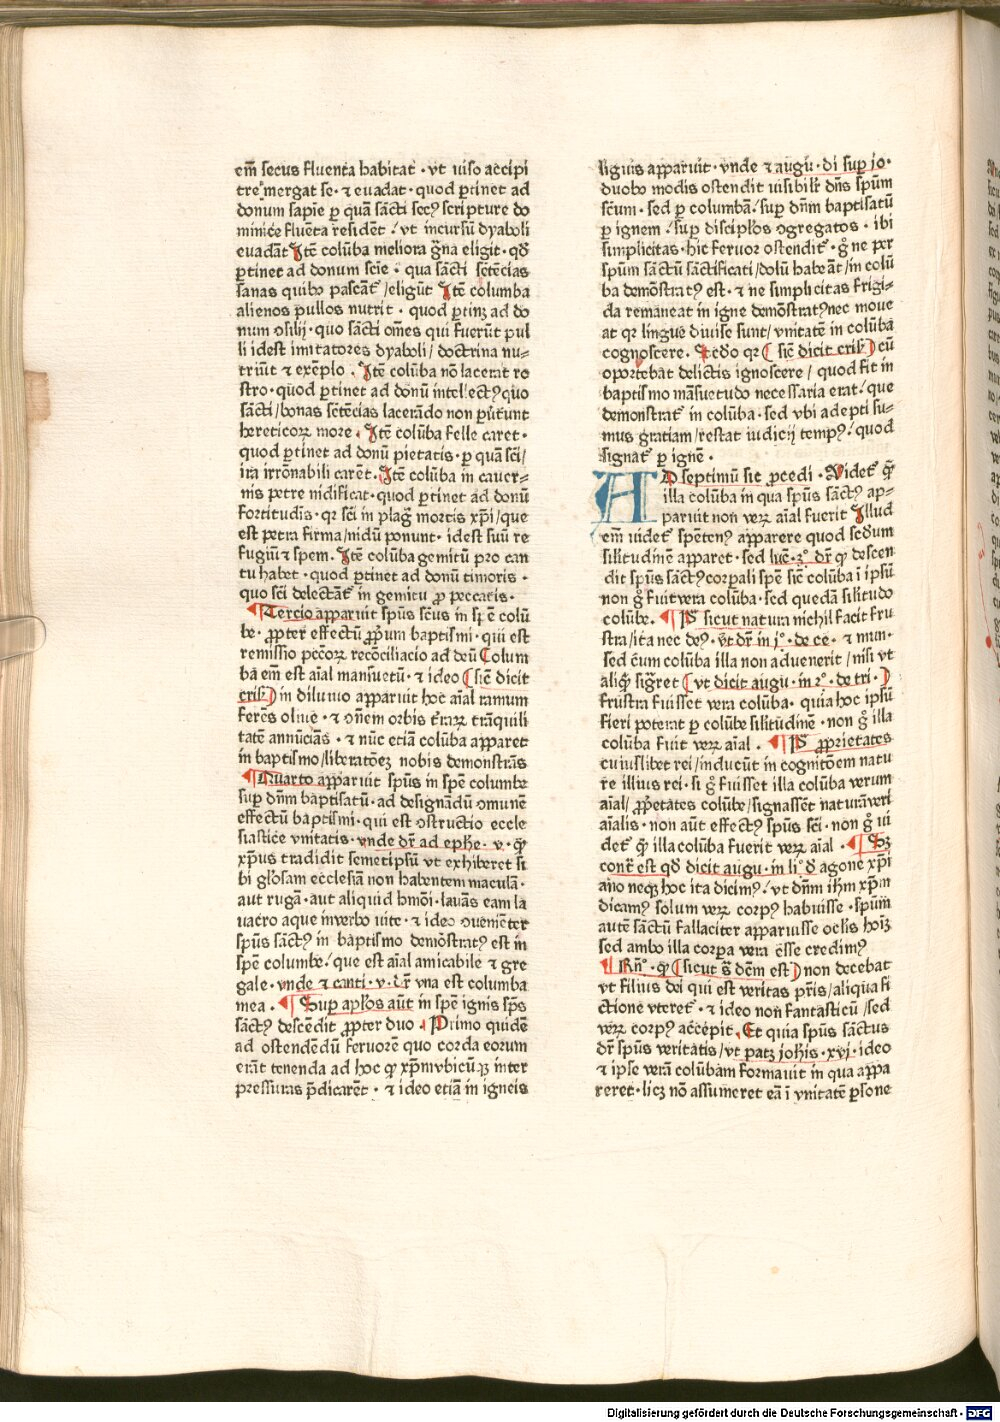 em̄ secus fluenta habitat · vt uiso accipi
tre mergat se · ⁊ euadat · quod ꝑtinet ad
donum sapīe ꝑ quā sācti secꝰ scripture do
minice fluēta resident · vt incursū dyaboli
euadāt Jtē colūba meliora gͣna eligit · qđ
ꝑtinet ad donum scīe · qua sācti sētēcias
sanas quibꝰ pascāt / eligūt Jtē columba
alienos pullos nutrit · quod ꝑtinꝫ ad do
num ꝯsilij · quo sācti om̄es qui fuerūt pul
li idest imitatores dyaboli / doctrina nu⸗
triūt ⁊ exēplo · Jtē colūba nō lacerat ro
stro · quod ꝑtinet ad donū intellectꝰ quo
sācti / bonas sētēcias lacerādo non ꝑūtunt
hereticoꝝ more · Jtē colūba felle caret ·
quod ꝑtinet ad donū pietatis · ꝑ quā sc̄i /
ira irrōnabili carēt · Jtē colūba in cauer⸗
nis petre nidificat · quod ꝑtinet ad donū
fortitudīs · qꝛ sc̄i in plagꝭ mortis xp̄i / que
est petra firma / nidū ponunt · idest suū re
fugiū ⁊ spem · Jtē colūba gemitū pro can
tu habet · quod ꝑtinet ad donū timoris ·
quo sc̄i delectāt̄ in gemitu ꝓ peccatis ·
¶ Tercio apparuit spūs sc̄us in spē colū
be · ꝓpter effectū ꝓpͥum baptismi · qui est
remissio pcc̄oꝝ recōciliacio ad deū Colum
ba em̄ est aīal mansuetū · ⁊ ideo ( sic̄ dicit
crisꝰ ) in diluuio apparuit hoc aīal ramum
ferēs oliue · ⁊ ꝯem orbis t̄raꝝ trāquili
tatē annūciās · ⁊ nūc etiā colūba apparet
in baptismo / liberatōeꝫ nobis demonstrās
¶ Quarto apparuit spūs in spē columbe
suꝑ dn̄m baptisatū · ad designādū ꝯmunē
effectū baptismi · qui est ꝯstructio eccle
siastice vnitatis · vnde dr̄ ad ephe · v · ꝙ
xp̄us tradidit semetipsū vt exhiberet si
bi gl̄osam ecclesiā non habentem maculā ·
aut rugā · aut aliquid hmōi · lauās eam la
uacro aque in verbo uite · ⁊ ideo ꝯuenīēter
spūs sāctꝰ in baptismo demōstratꝰ est in
spē columbe / que est aīal amicabile ⁊ gre
gale · vnde ⁊ canti · v · dr̄ vna est columba
mea · ¶ Suꝑ apl̄os aūt in spē ignis spūs
sāctꝰ descēdit ꝓpter duo · Primo quidē
ad ostendēdū feruorē quo corda eorum
erāt tenenda ad hoc ꝙ xp̄m vbicūqꝫ inter
pressuras p̄dicarēt · ⁊ ideo etiā in igneis
liguis apparuit · vnde ⁊ augꝰ · di suꝑ jo ·
duobꝰ modis ostendit uisibilr̄ dn̄s spūm
sc̄um · sed ꝑ columbā / suꝑ dn̄m baptisatū
ꝑ ignem / suꝑ discipl̄os ꝯgregatos · ibi
simplicitas · hic feruor ostendit̄ · gͦ ne per
spūm sāctū sāctificati / dolū habeāt / in colū
ba demōstratꝰ est · ⁊ ne simplicitas frigi⸗
da remaneat in igne demōstratꝰ nec moue
at qꝛ lingue diuise sunt / vnitatē in colūba
cognoscere · Secdo qꝛ ( sic̄ dicit crisꝰ ) cū
oportebat delictis ignoscere / quod fit in
baptismo māsuetudo necessaria erat / que
demonstrat̄ in colūba · sed vbi adepti su⸗
mus gratiam / restat iudicij tempꝰ / quod
signat̄ ꝑ ignē ·
AD septimū sic ꝓcedi · Videt̄ ꝙ
illa colūba in qua spūs sāctꝰ ap⸗
paruit non veꝝ aīal fuerit Jllud
em̄ uidet̄ spētenꝰ apparere quod secdum
similitudinē apparet · sed luc̄ · 2º · dr̄ ꝙ descen
dit spūs sāctꝰ corꝑali spē sic̄ colūba ī ipsū
non gͦ fuit vera colūba · sed quedā silitudo
colūbe · ¶ Pͬ sicut natura nichil facit fru
stra / ita nec deꝰ · vt dr̄ in jº · de ce · ⁊ mun ·
sed cum colūba illa non aduenerit / nisi vt
aliqͥd sigͬret ( vt dicit augu · in 2º · de tri · )
frustra fuisset vera colūba · quia hoc ipsū
fieri poterat ꝑ colūbe silitudinē · non gͦ illa
colūba fuit veꝝ aīal · ¶ Pͬ ꝓprietates
cuiuslibet rei / inducūt in cognitōem natu
re illius rei · si gͦ fuisset illa colūba verum
aīal / ꝓpͥetates colūbe / signassēt naturā veri
aīalis · non aūt effectꝰ spūs sc̄i · non gͦ ui
det̄ ꝙ illa colūba fuerit veꝝ aīal · ¶ Sꝫ
contͬ est qđ dicit augu · in liº đ agone xp̄i
ano neqꝫ hoc ita dicimꝰ / vt dn̄m ih̄m xp̄m
dicamꝰ solum veꝝ corpꝰ habuisse · spūm
autē sāctū fallaciter apparuisse ocl̄is hoīꝫ
sed ambo illa corꝑa vera esse credimꝰ
¶ Rn̄º · ꝙ ( sicut s̄ dcm̄ est ) non decebat
vt filius dei qui est veritas pr̄is / aliqua fi
ctione vteret̄ · ⁊ ideo non fantasticū / sed
veꝝ corpꝰ accepit · Et quia spūs sāctus
dr̄ spūs veritatis / vt patꝫ joh̄is · xvi · ideo
⁊ ipse verā colūbam formauit in qua appa
reret · licꝫ nō assumeret eā ī vnitatē ꝑsone
Digitalisierung gefördert durch die Deutsche Forschungsgemeinschaft - DFG